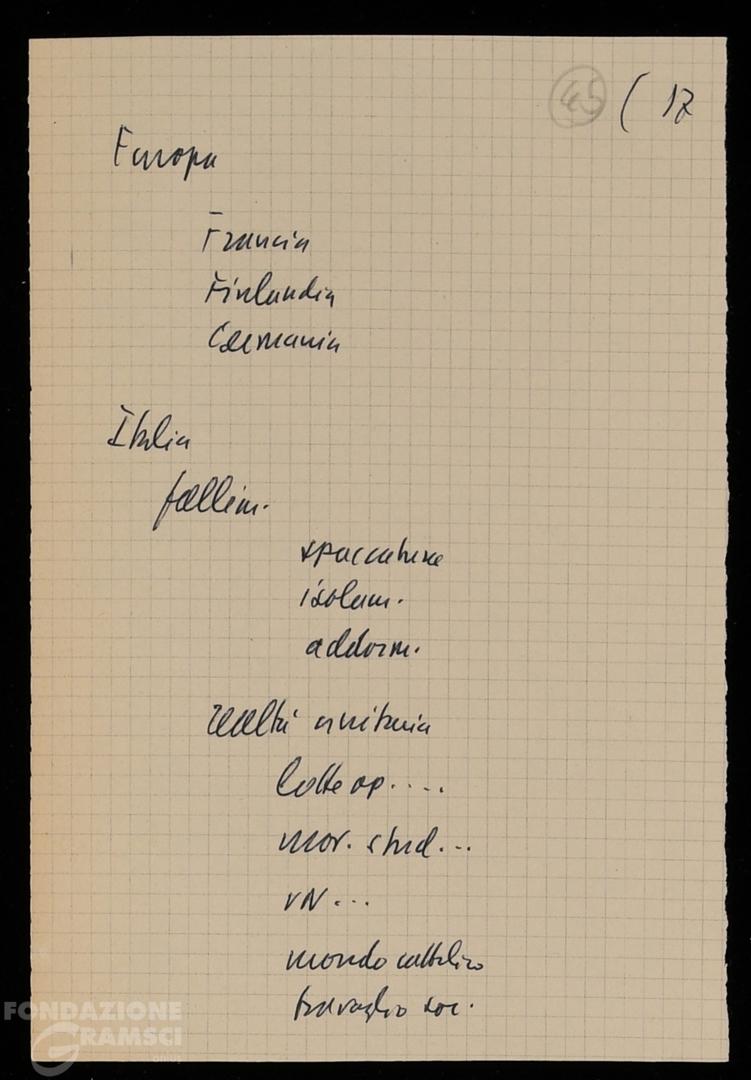 45 ( 17
Europa
Francia
Finlandia
Germania
Italia
fallim.
spaccatura
isolam.
addorm.
realtà unitaria
lotte op....
mov. stud...
VN...
mondo cattolico
travaglio soc.
FONDAZIONE
GRAMSCI